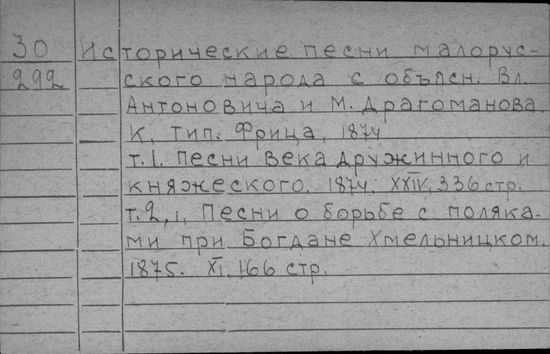 30 Исторические песни малорус-
292 ского народа с объясн. Вл.
Антоновича и М. Драгоманова.
К, тип. Фрица, 1874
т. 1. Песни века дружинного и
княжеского. 1874. XXIV, 336 стр.
т. 2, 1, Песни о борьбе с поляка-
ми при Богдане Хмельницком.
1875. XI, 166 стр.